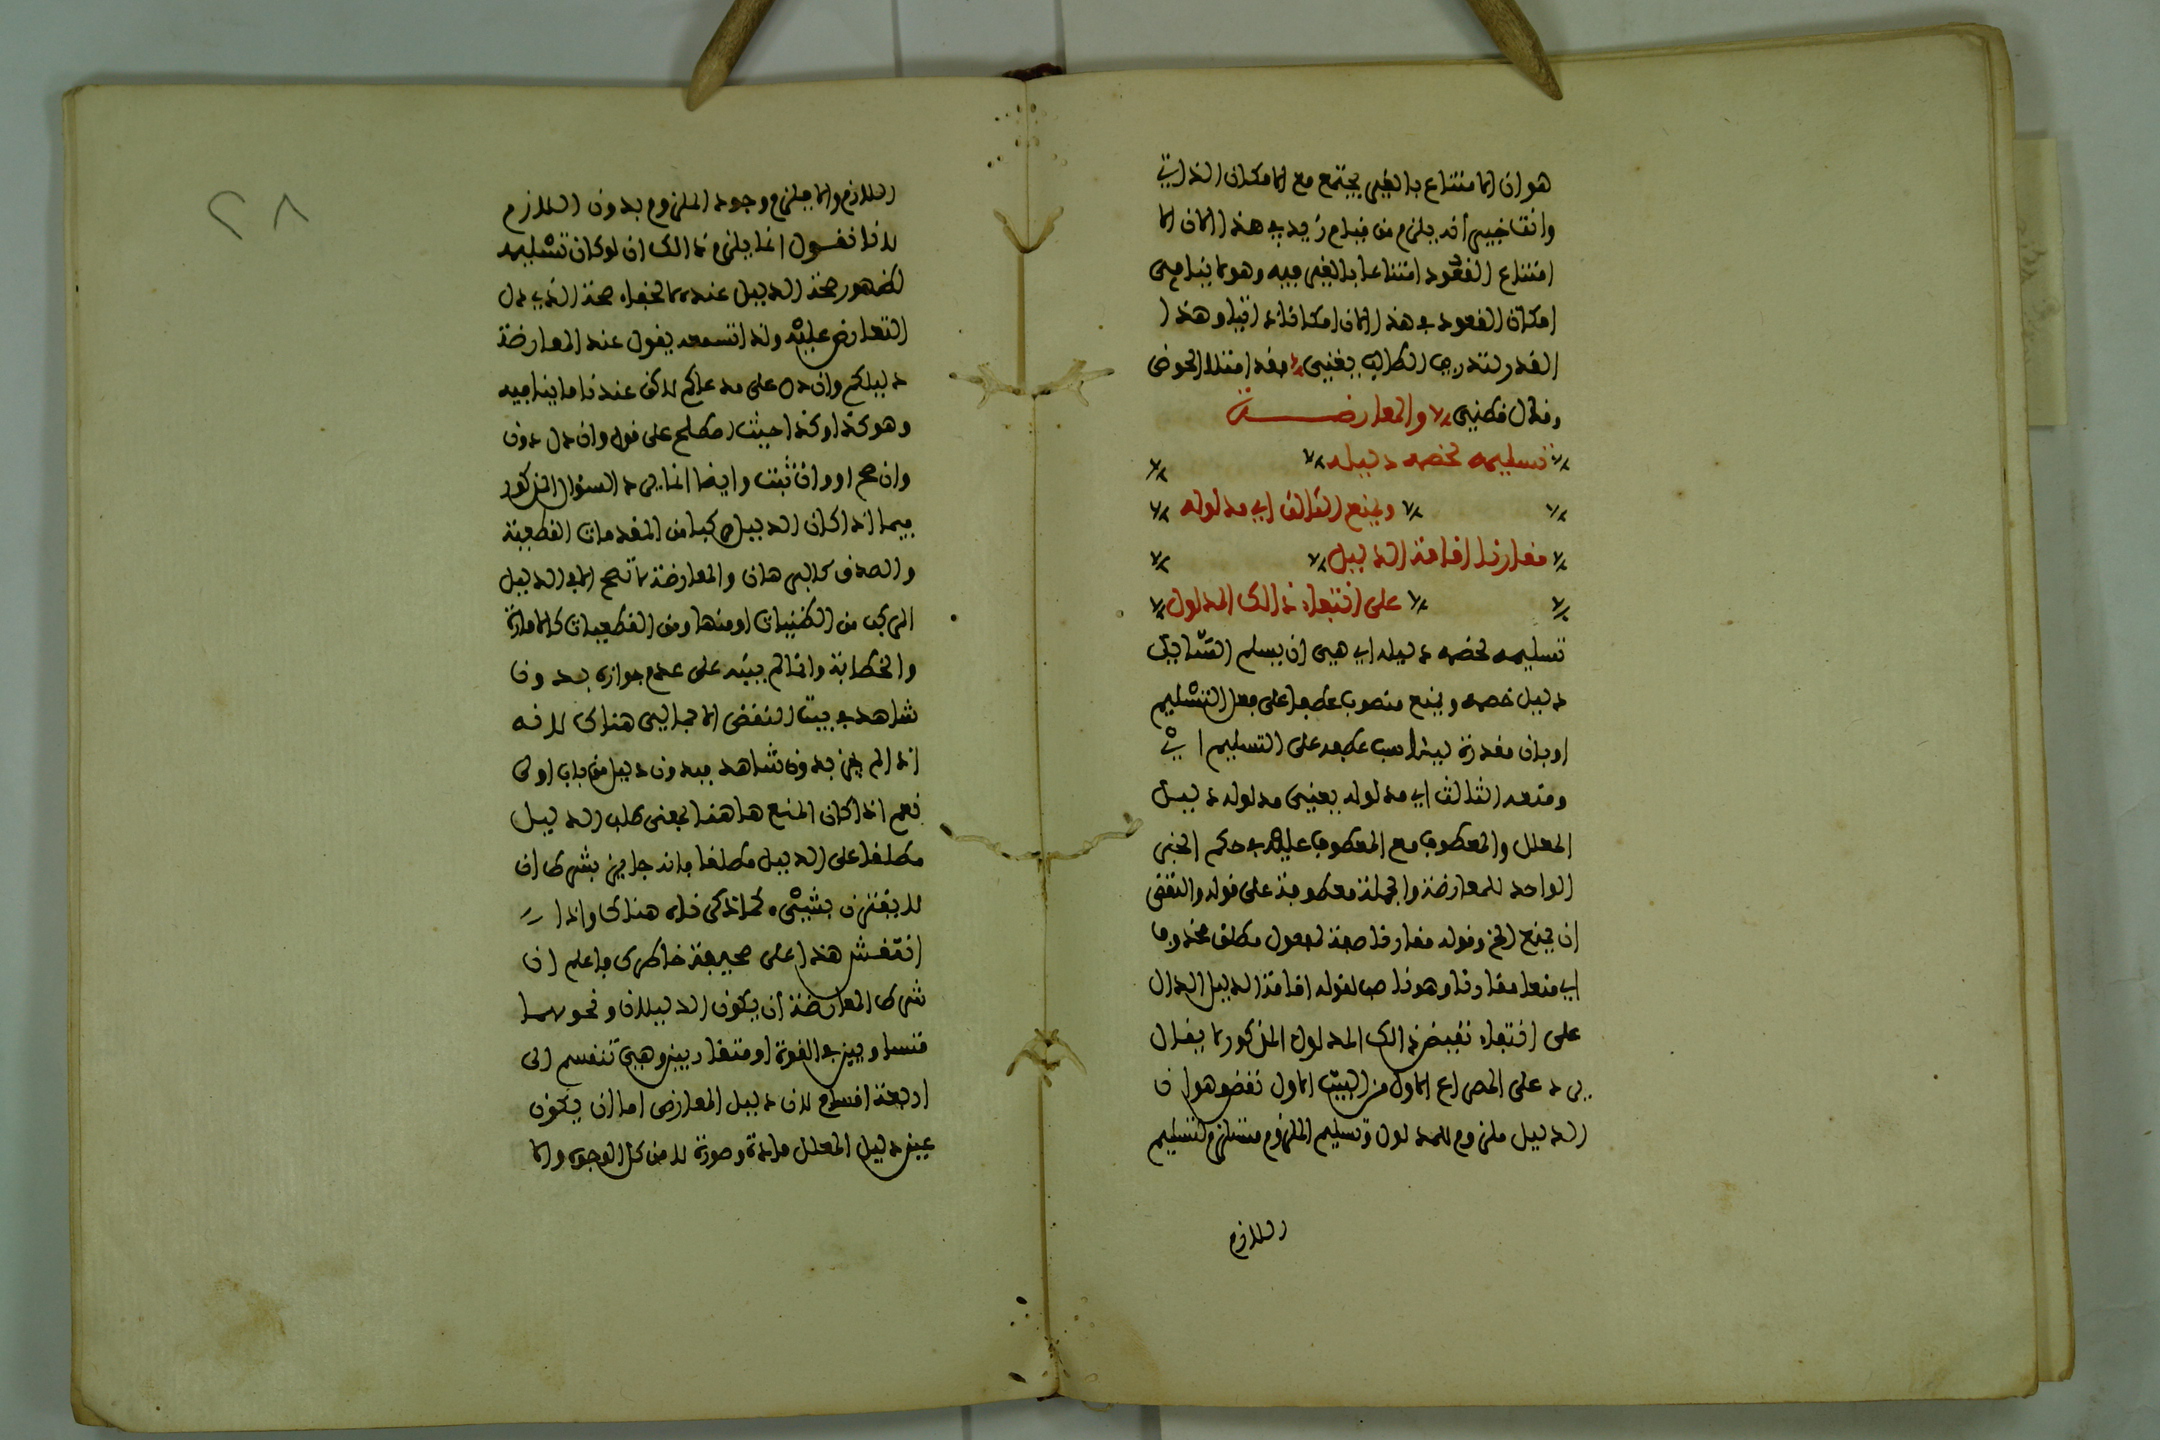 هو ان الامتناع بالغير يجتمع مع الامكان الذاتي
وانتاخيير انه يلزم من قيام زيد في هذا الان الا
امتناع القعود امتناعا بالغير فيه وهو لا ينافي
امكان القعود في هذا الان امكانا ذاتيا وهذا
القدر لتدريب الطالب يغني فقد امتلا الحوض
وقال قطني والمعارضة
تسليمه لخصمه دليله
ويمنع الثالث اي مدلوله
مقارنا اقامة الدليل
على انتفاء ذالك المدلول
تسليمه لخصمه دليله اي هي ان يسلم السائل
دليل خصمه ويمنع منصوب عطفا على فعل التسليم
او بان مقدرة ليناسب عطفه على التسليم اي
ومنعه الثالث اي مدلوله يعني مدلوله دليل
المعلل والمعطوف مع المعطوف عليه في حكم الخبر
الواحد للمعارضة والجملة معطوفة على قوله والنقض
ان يمنع الخ وقوله مقارنا صفة لمفعول مطلق محذوف
اي منعا مقارنا وهو ناصب لقوله اقامة الدليل الدال
على انتفاء نقيض ذالك المدلول المذكور لا يقال
يرد على المصراع الاول من البيت الاول نقض وهو ان
الدليل ملزوم للمدلول وتسليم الملزوم مستلزم لتسليم
اللازم
٢٨
اللازم والا يلزم وجود الملزوم بدون اللازم
لانا نقول انما يلزم ذالك ان لو كان تسليمه
لظهور صحة الدليل عنده لا لخفاء صحة الذي دل
التعارض عليه ولذا تسمعه يقول عند المعارضة
دليلكم وان دل على مدعاكم لاكن عندنا ما ينافيه
وهو كذا وكذا حيث اصطلح على قوله وان دل دون
وان صح او وان ثبت وايضا انما يرد السؤال المذكور
فيما اذا كان الدليل مركبا من المقدمات القطعية
والصدق كالبرهان والمعارضة لا تصح الا في الدليل
المركب من الظنيات او منها ومن القطعيات كالامارة
والخطابة وانما لم ينبه على عدم جوازه بدون
شاهد في بيت النقض الاجمالي هناك لانه
اذا لم يجز بدون شاهد فبدون دليل من باب اولى
نعم اذا كان المنع هاهنا بمعنى طلب الدليل
مطلقا على الدليل مطلقا فانه جايز بشرط ان
لا يقترن بشيء كما ذكرناه هناك واذا
انتقش هذا على صحيفة خاطرك فاعلم ان
شرط المعارضة ان يكون الدليلان ونحوهما
متساويين في القوة او متقاربين وهي تنقسم الى
اربعة اقسام لان دليل المعارض اما ان يكون
عين دليل المعلل مادة وصورة لا من كل الوجوه والا